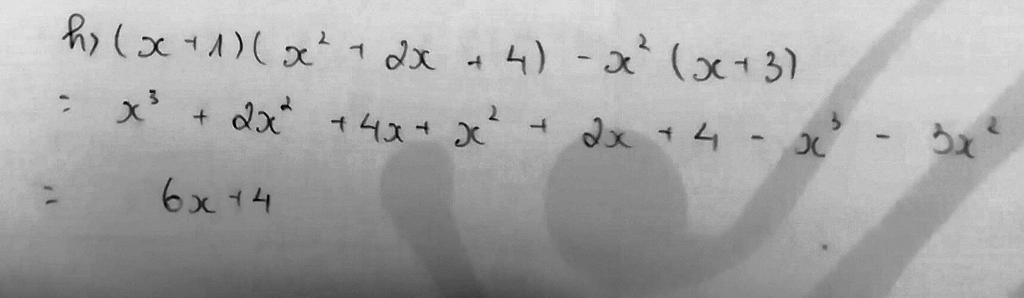 h) (x + 1)(x² + 2x + 4) - x² (x + 3)
= x³ + 2x² + 4x + x² + 2x + 4 - x³ - 3x²
= 6x + 4